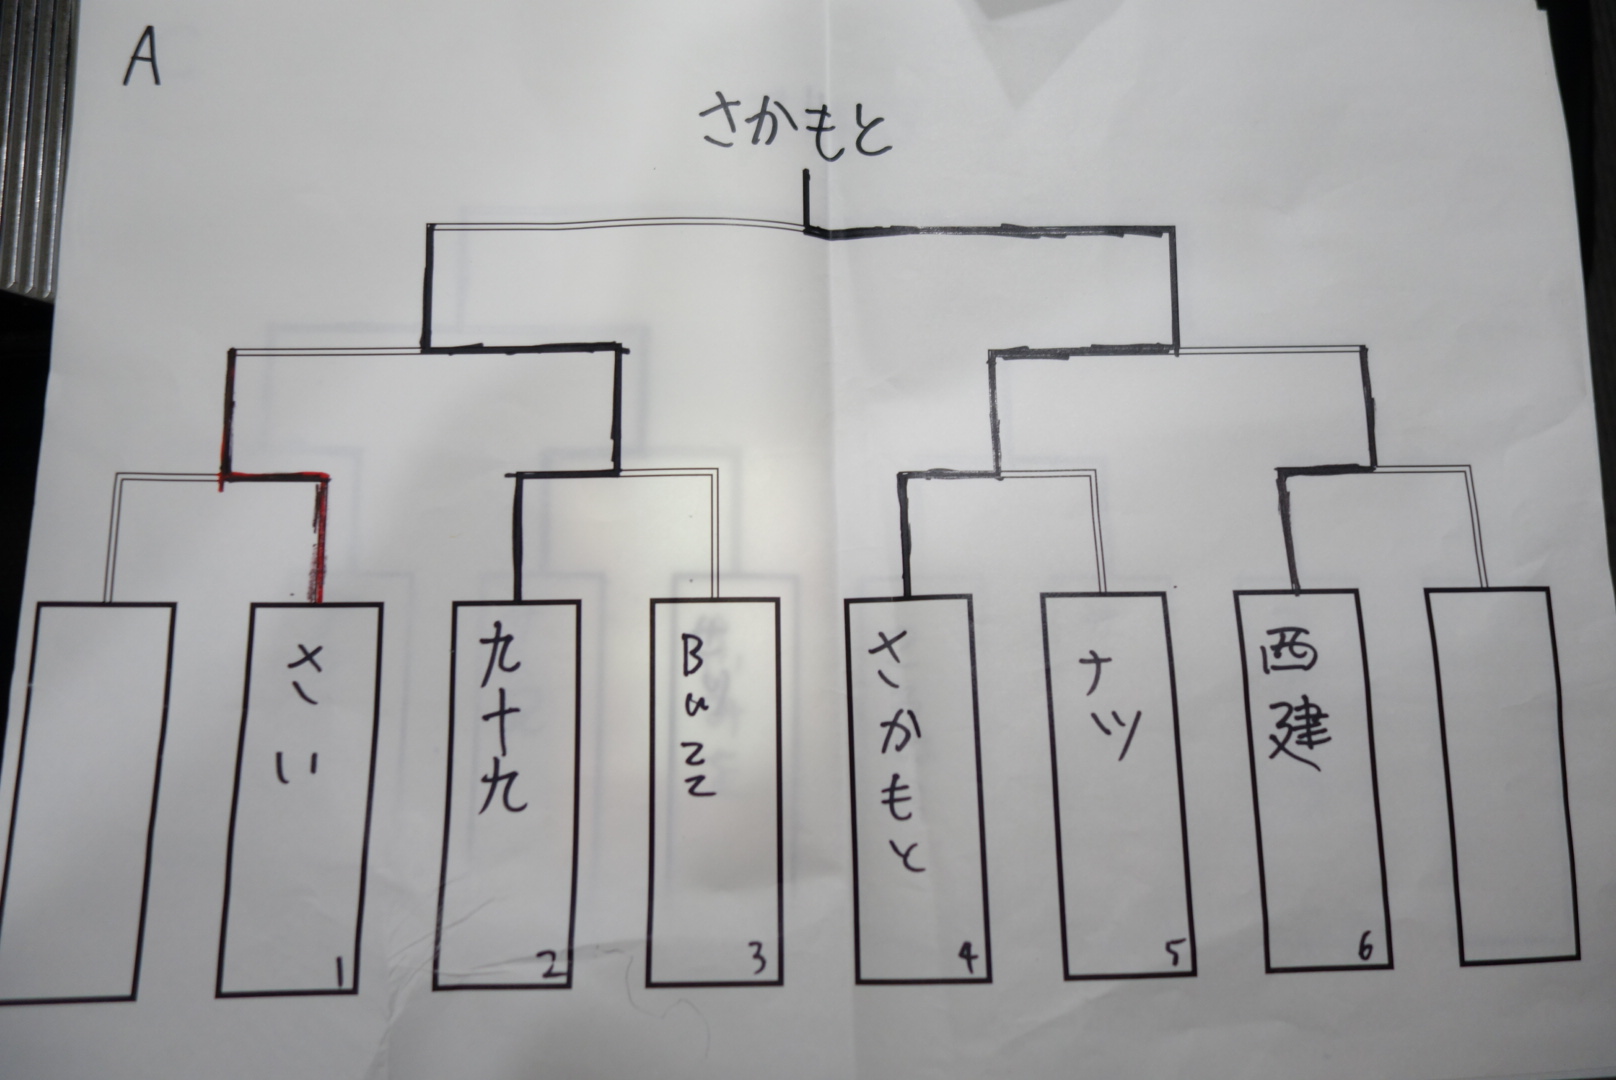 A
さかもと
さい
1
九十九
2
Buzz
3
さかもと
4
ナツ
5
西建
6